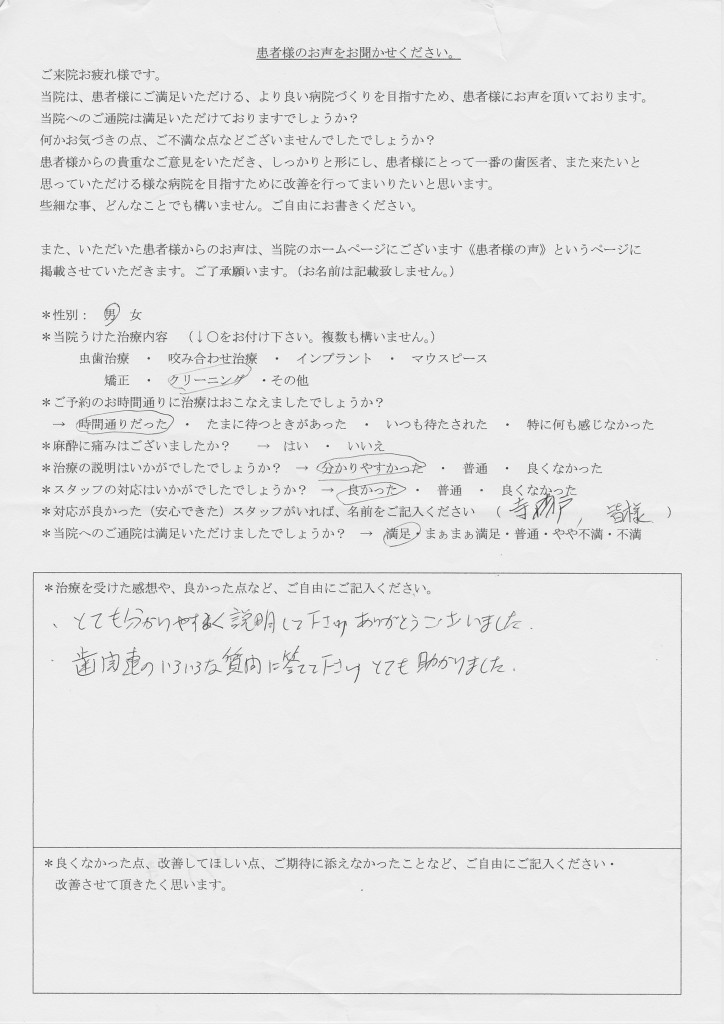 患者様のお声をお聞かせください。
ご来院お疲れ様です。
当院は、患者様にご満足いただける、より良い病院づくりを目指すため、患者様にお声を頂いております。
当院へのご通院は満足いただけておりますでしょうか？
何かお気づきの点、ご不満な点などございませんでしたでしょうか？
患者様からの貴重なご意見をいただき、しっかりと形にし、患者様にとって一番の歯医者、また来たいと
思っていただける様な病院を目指すために改善を行ってまいりたいと思います。
些細な事、どんなことでも構いません。ご自由にお書きください。
また、いただいた患者様からのお声は、当院のホームページにございます《患者様の声》というページに
掲載させていただきます。ご了承願います。（お名前は記載致しません。）
＊性別： 男 女
＊当院うけた治療内容 （↓〇をお付け下さい。複数も構いません。）
虫歯治療 ・ 咬み合わせ治療 ・ インプラント ・ マウスピース
矯正 ・ クリーニング ・その他
＊ご予約のお時間通りに治療はおこなえましたでしょうか？
→ 時間通りだった ・ たまに待つときがあった ・ いつも待たされた ・ 特に何も感じなかった
＊麻酔に痛みはございましたか？ → はい ・ いいえ
＊治療の説明はいかがでしたでしょうか？ → 分かりやすかった ・ 普通 ・ 良くなかった
＊スタッフの対応はいかがでしたでしょうか？ → 良かった ・ 普通 ・ 良くなかった
＊対応が良かった（安心できた）スタッフがいれば、名前をご記入ください （ 皆様 ）
＊当院へのご通院は満足いただけましたでしょうか？ → 満足・まぁまぁ満足・普通・やや不満・不満
＊治療を受けた感想や、良かった点など、ご自由にご記入ください。
、とても分かりやすく説明して下さりありがとうございました.
・歯関連のいろいろな質問に答えて下さりとても助かりました.
＊良くなかった点、改善してほしい点、ご期待に添えなかったことなど、ご自由にご記入ください・
改善させて頂きたく思います。